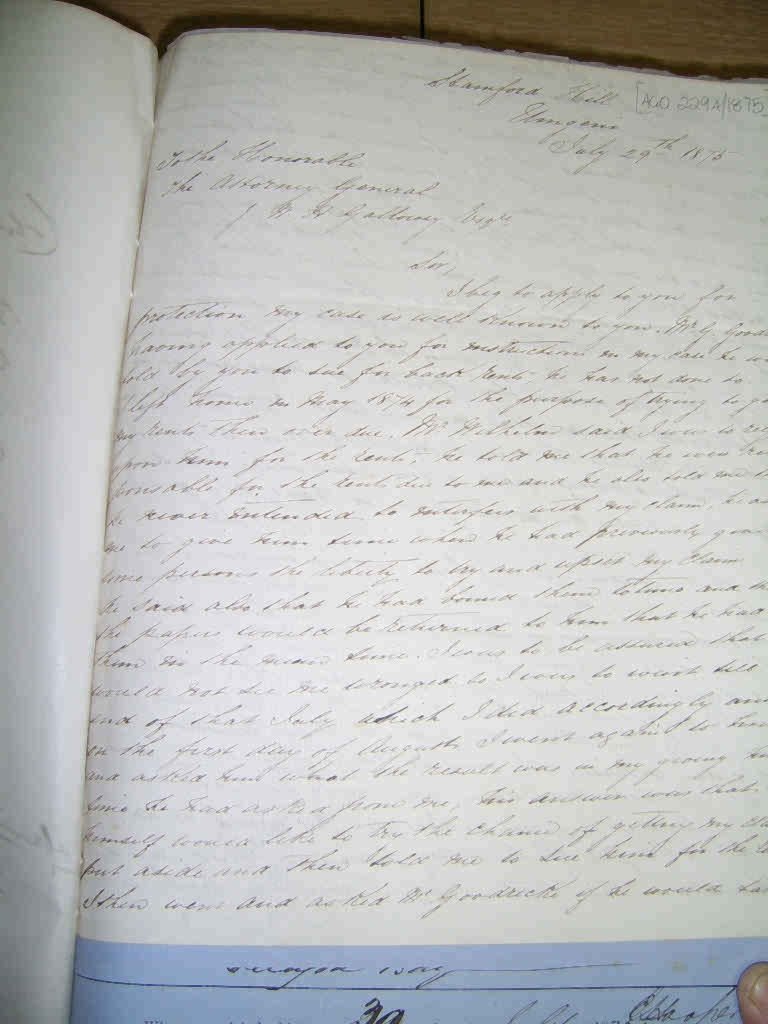 Stamford Hill
[AGO 229A/1875]
Umgeni
July 29th 1875
To the Honorable
The Attorney General
M H Gallwey Esqre
Sir,
I beg to apply to you for
protection my case is well known to you. Mr G. Good
having applied to you for instructions in my case he w
told by you to sue for back rents, he has not done so.
I left home in May 1874 for the purpose of trying to g
my rents then over due. Mr Wilhelm said I was to
upon him for the rents, he told me that he was
ponsable for the rents due to me and he also told me
he never intended to interfere with my claim, he as
me to give him time when he had previously
some persons the liberty to try and upset my claim
he said also that he had bound them to time and
the papers would be returned to him that he had
them in the mean time. I was to be assured that
would not see me wronged so I was to wait till
end of that July which I did accordingly and
on the first day of August I went again to him
and asked him what the result was in my giving him
time he had asked from me, his answer was that
himself would like to try the chance of getting my
put aside and then told me to sue him for the
I then went and asked Mr Goodricke if he would
30